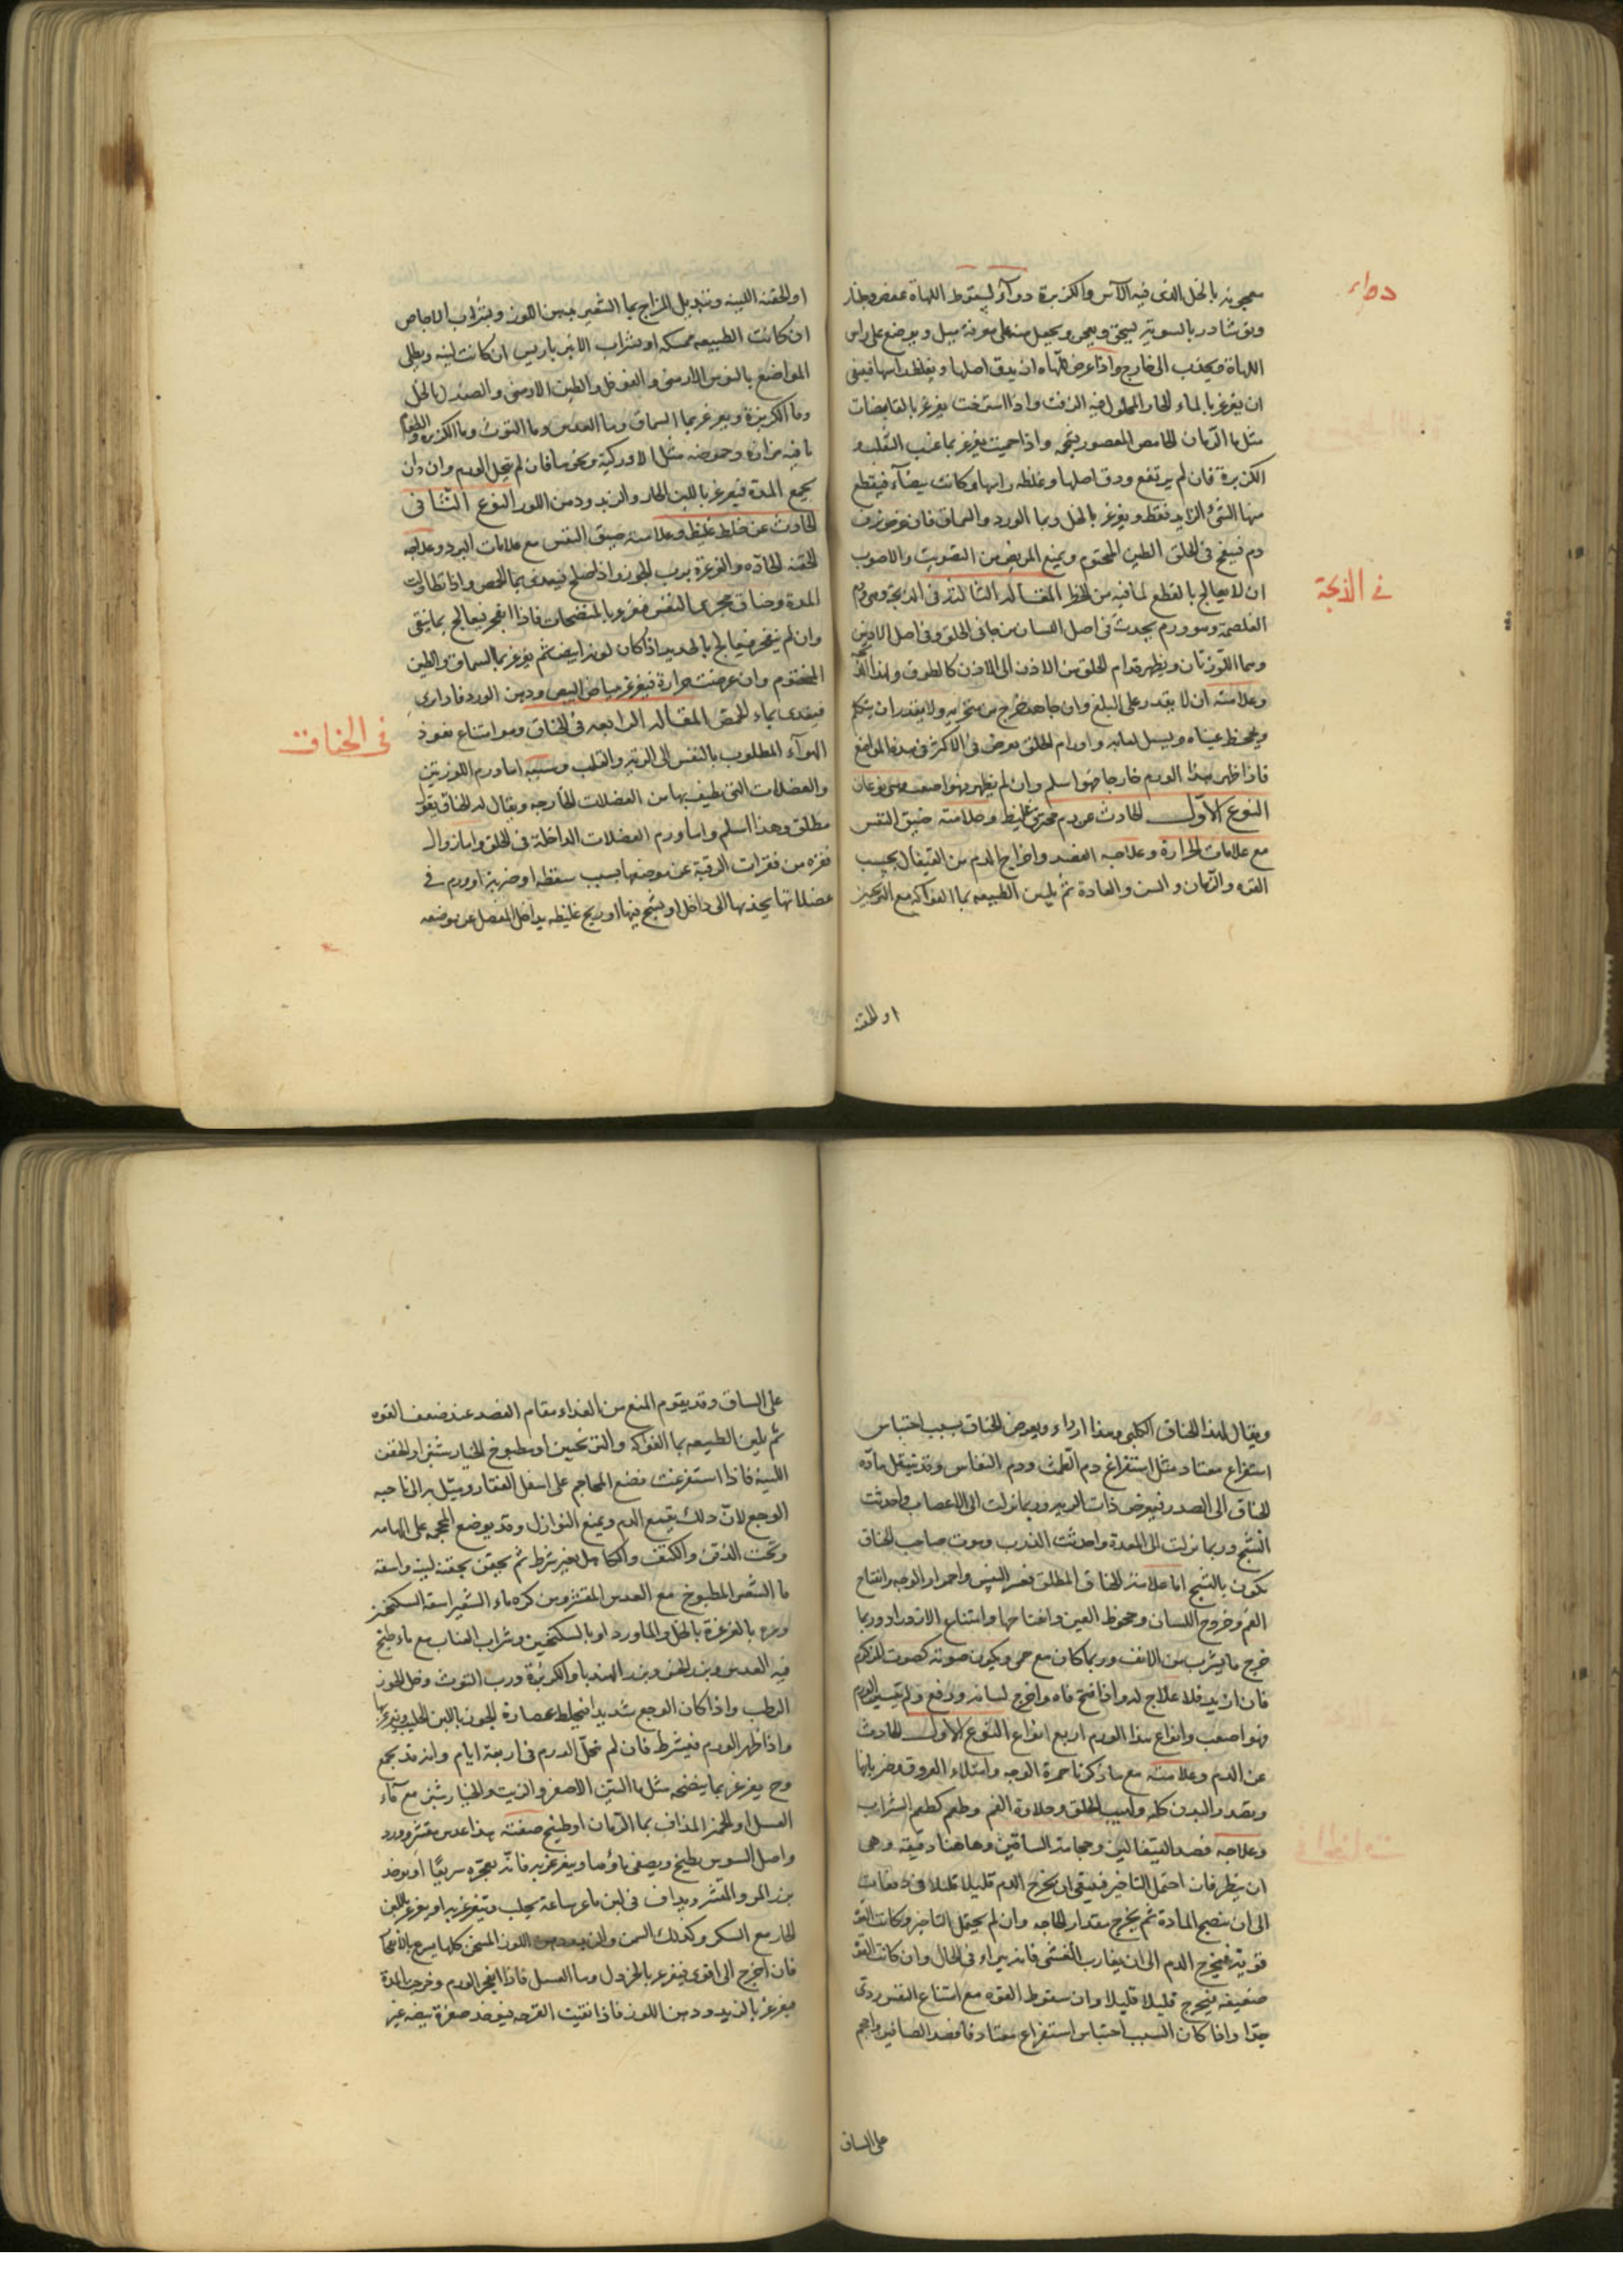 معجونه بالخل الذى فيه الآس والكزبرة دوآء لسقوط اللهاة عفص وجلنار
دواء
ونوشادر بالسوية يسحق ويعجن ويجعل منه على مغرفة ميل ويوضع على راس
اللهاة ويجذب الى خارج واذا عرض للهاه ان يدق اصلها ويغلظ راسها فينبغى
ان يغرغر بالماء الحار المحلول فيه الزفت واذا استرخت يغرغر بالقابضات
مثل ماء الرمان الحامض المعصور بشحمه واذا حميت يغرغر بماء عنب الثعلب و
الكزبرة فان لم يرتفع ودق اصلها وغلظ راسها وكانت بيضآء فيقطع
منها الشئ الزايد فقط ويغرغر بالخل وبماء الورد والسماق فان عرض نزف
دم فينفخ فى الحلق الطين المختوم ويمنع المريض من التصويت والاصوب
ان لا يعالج بالقطع لما فيه من الخطر المقاله الثالثه فى الذبحة وهى ورم
فى الذبحة
الغلصمة وهو ورم يحدث فى اصل اللسان من جانبى الحلق وفى اصل الاذنين
وهما اللوزتان ويظهر قدام الحلق من الاذن الى الاذن كالطوق
وعلامته ان لا يقدر على البلع وان جاهد خرج من منخريه ولا يقدر ان يتكلم
ويجحظ عيناه ويسيل لعابه واورام الحلق يعرض فى الاكثر فى هذه المواضع
فاذا ظهر هذا الورم خارجا فهو اسلم وان لم يظهر فهو اصعب وهى نوعان
النوع الاول الحادث عن دم محترق غليظ وعلامته ضيق النفس
مع علامات الحرارة وعلاجه الفصد واخراج الدم من القيفال بحسب
القوه والزمان والسن والعادة ثم يلين الطبيعه بماء الفواكه مع الترنجبين
او الحقنه
او الحقنه اللينه وتبديل المزاج بماء الشعير بدهن اللوز وبشراب الاجاص
ان كانت الطبيعه ممسكه او بشراب الانبرباريس ان كانت لينه ويطلى
المواضع بالبوش الارمنى والفوفل والطين الارمنى والصندل بالخل
وماء الكزبرة ويغرغر بماء السماق وماء العدس وماء التوث وماء الكزبره
ما فيه مزازه وحموضه مثل ونحوها فان لم يتحلل الورم وان دان
يجمع المدة فيغرغر باللبن الحار والزبد ودهن اللوز النوع الثانى
الحادث عن خلط غليظ وعلامته ضيق النفس مع علامات البرد وعلاجه
الحقنه الحآده والغرغرة برب الجوز واذا صلح فيغدى بماء الحمص واذا تطاولت
المدة وضاق مجرى النفس فغرغر بالمنضجات فاذا انفجر فيعالج بما ينقى
وان لم ينفجر فيعالج بالحديد اذا كان لونه ابيض ثم يغرغر بماء السماق والطين
المختوم وان عرضت حرارة فيغرغر ببياض البيض ودهن الورد
فيغدى بماء الحمص المقاله الرابعه فى الخناق وهو امتناع نفوذ
فى الخناق
الهوآء المطلوب بالنفس الى الرية والقلب وسببه اما ورم اللوزتين
والعضلات التى تطيف بها من العضلات الخارجه ويقال له الخناق بقول
مطلق وهذا اسلم واما ورم العضلات الداخلة فى الحلق واما زوال
فقره من فقرات الرقبة عن موضعها بسبب سقطه او ضربه او ورم فى
عضلاتها يجذبها الى داخل او تشنج فيها او ريح غليظه يداخل المفصل عن موضعه
ويقال لهذا الخناق الكلبى وهذا ارداء ويعرض الخناق بسبب احتباس
استفراغ معتاد مثل استفراغ دم الطمث ودم النفاس وقد تنتقل مادّة
الخناق الى الصدر فيعرض ذات الريه وربما نزلت الى الاعصاب واحدثت
التشنج وربما نزلت الى المعدة واحدثت الذرب وموت صاحب الخناق
يكون بالتشنج اما علامة الخناق المطلق فعسر النفس واحمرار الوجه وانتفاخ
الفم وخروج اللسان وجحوظ العين وانفتاحها وامتناع الازدراد وربما
خرج ما يشرب من الانف وربما كان مع حمى ويكون صوته كصوت المزكوم
فان ازيد فلا علاج له واذا فتح فاه واخرج لسانه ودفع ولم يتبين الورم
فهو اصعب وانواع هذا الورم اربع انواع النوع الاول الحادث
عن الدم وعلامته مع ما ذكرنا حمرة الوجه وامتلاء العروق وضربانها
وتمدد البدن كله ولهيب الحلق وحلاوة الفم وطعم كطعم الشراب
وعلاجه فصد القيفالين وحجامة الساقين وهاهنا دقيقه وهى
ان ينظر فان احتمل التاخير فينبغى ان يخرج الدم قليلا قليلا فى دفعات
الى ان ينضج المادة ثم يخرج مقدار الحاجه وان لم يحتمل التاخير وكانت القوة
قوية فيخرج الدم الى ان يقارب الغشى فانه يبراء فى الحال وان كانت القوة
ضعيفه فيخرج قليلا قليلا وان سقوط القوه مع امتناع النفس ردى
جدّا واذا كان السبب احتباس استفراغ معتاد فافصد الصافين واحجم
على الساق
على الساق وقد يقوم المنع من الغذاء مقام الفصد عند ضعف القوه
ثم يلين الطبيعه بماء الفواكه والترنجبين او مطبوخ الخيارشنبر او الحقن
اللينه فاذا استفرغت فضع المحاجم على اسفل الفقار وميل بها الى ناحيه
الوجع لان ذلك يقمع الدم ويمنع النوازل وقد يوضع المحجمه على الهامه
وتحت الذقن والكتف والكاهل بغير شرط ثم يحقن بحقنه لينه واسقه
ماء الشعير المطبوخ مع العدس المقشر ومن كره ماء الشعير اسقه السكنجبين
ومره بالغرغرة بالخل والماورد او بالسكنجبين وشراب العناب مع ماء طبخ
فيه العدس وبزر الخس وبزر الهندبا والكزبرة ورب التوث وخل الجوز
الرطب واذا كان الوجع شديدا فيخلط عصارة الجوز باللبن الحليب
واذا ظهر الورم فيشرط فان لم يتحلل الورم فى اربعة ايام وانه قد يجمع
وح يغرغر بما ينضجه مثل ماء التين الاصفر والزيت والخيارشنبر مع ماء
العسل او الخمير المذاف بماء الرمان او طبيخ صفته هذا عدس مقشر وورد
واصل السوس يطبخ ويصفى ماؤها ويغرغر به فانه يفجره سريعا او يوخذ
بزر المرو والمقشر ويداف فى لبن ماعز ساعة يحلب ويتغرغر به او يغرغر باللبن
الحار مع السكر وكذلك السمن والزبد ودهن اللوز المسخن كلها يسرع بالانفجار
فان احوج الى اقوى فيغرغر بالخردل وماء العسل فاذا انفجر الورم وخرجت المدة
فيغرغر بالزبد ودهن اللوز فاذا نقيت القرحه فيوخذ صفرة بيضه غير